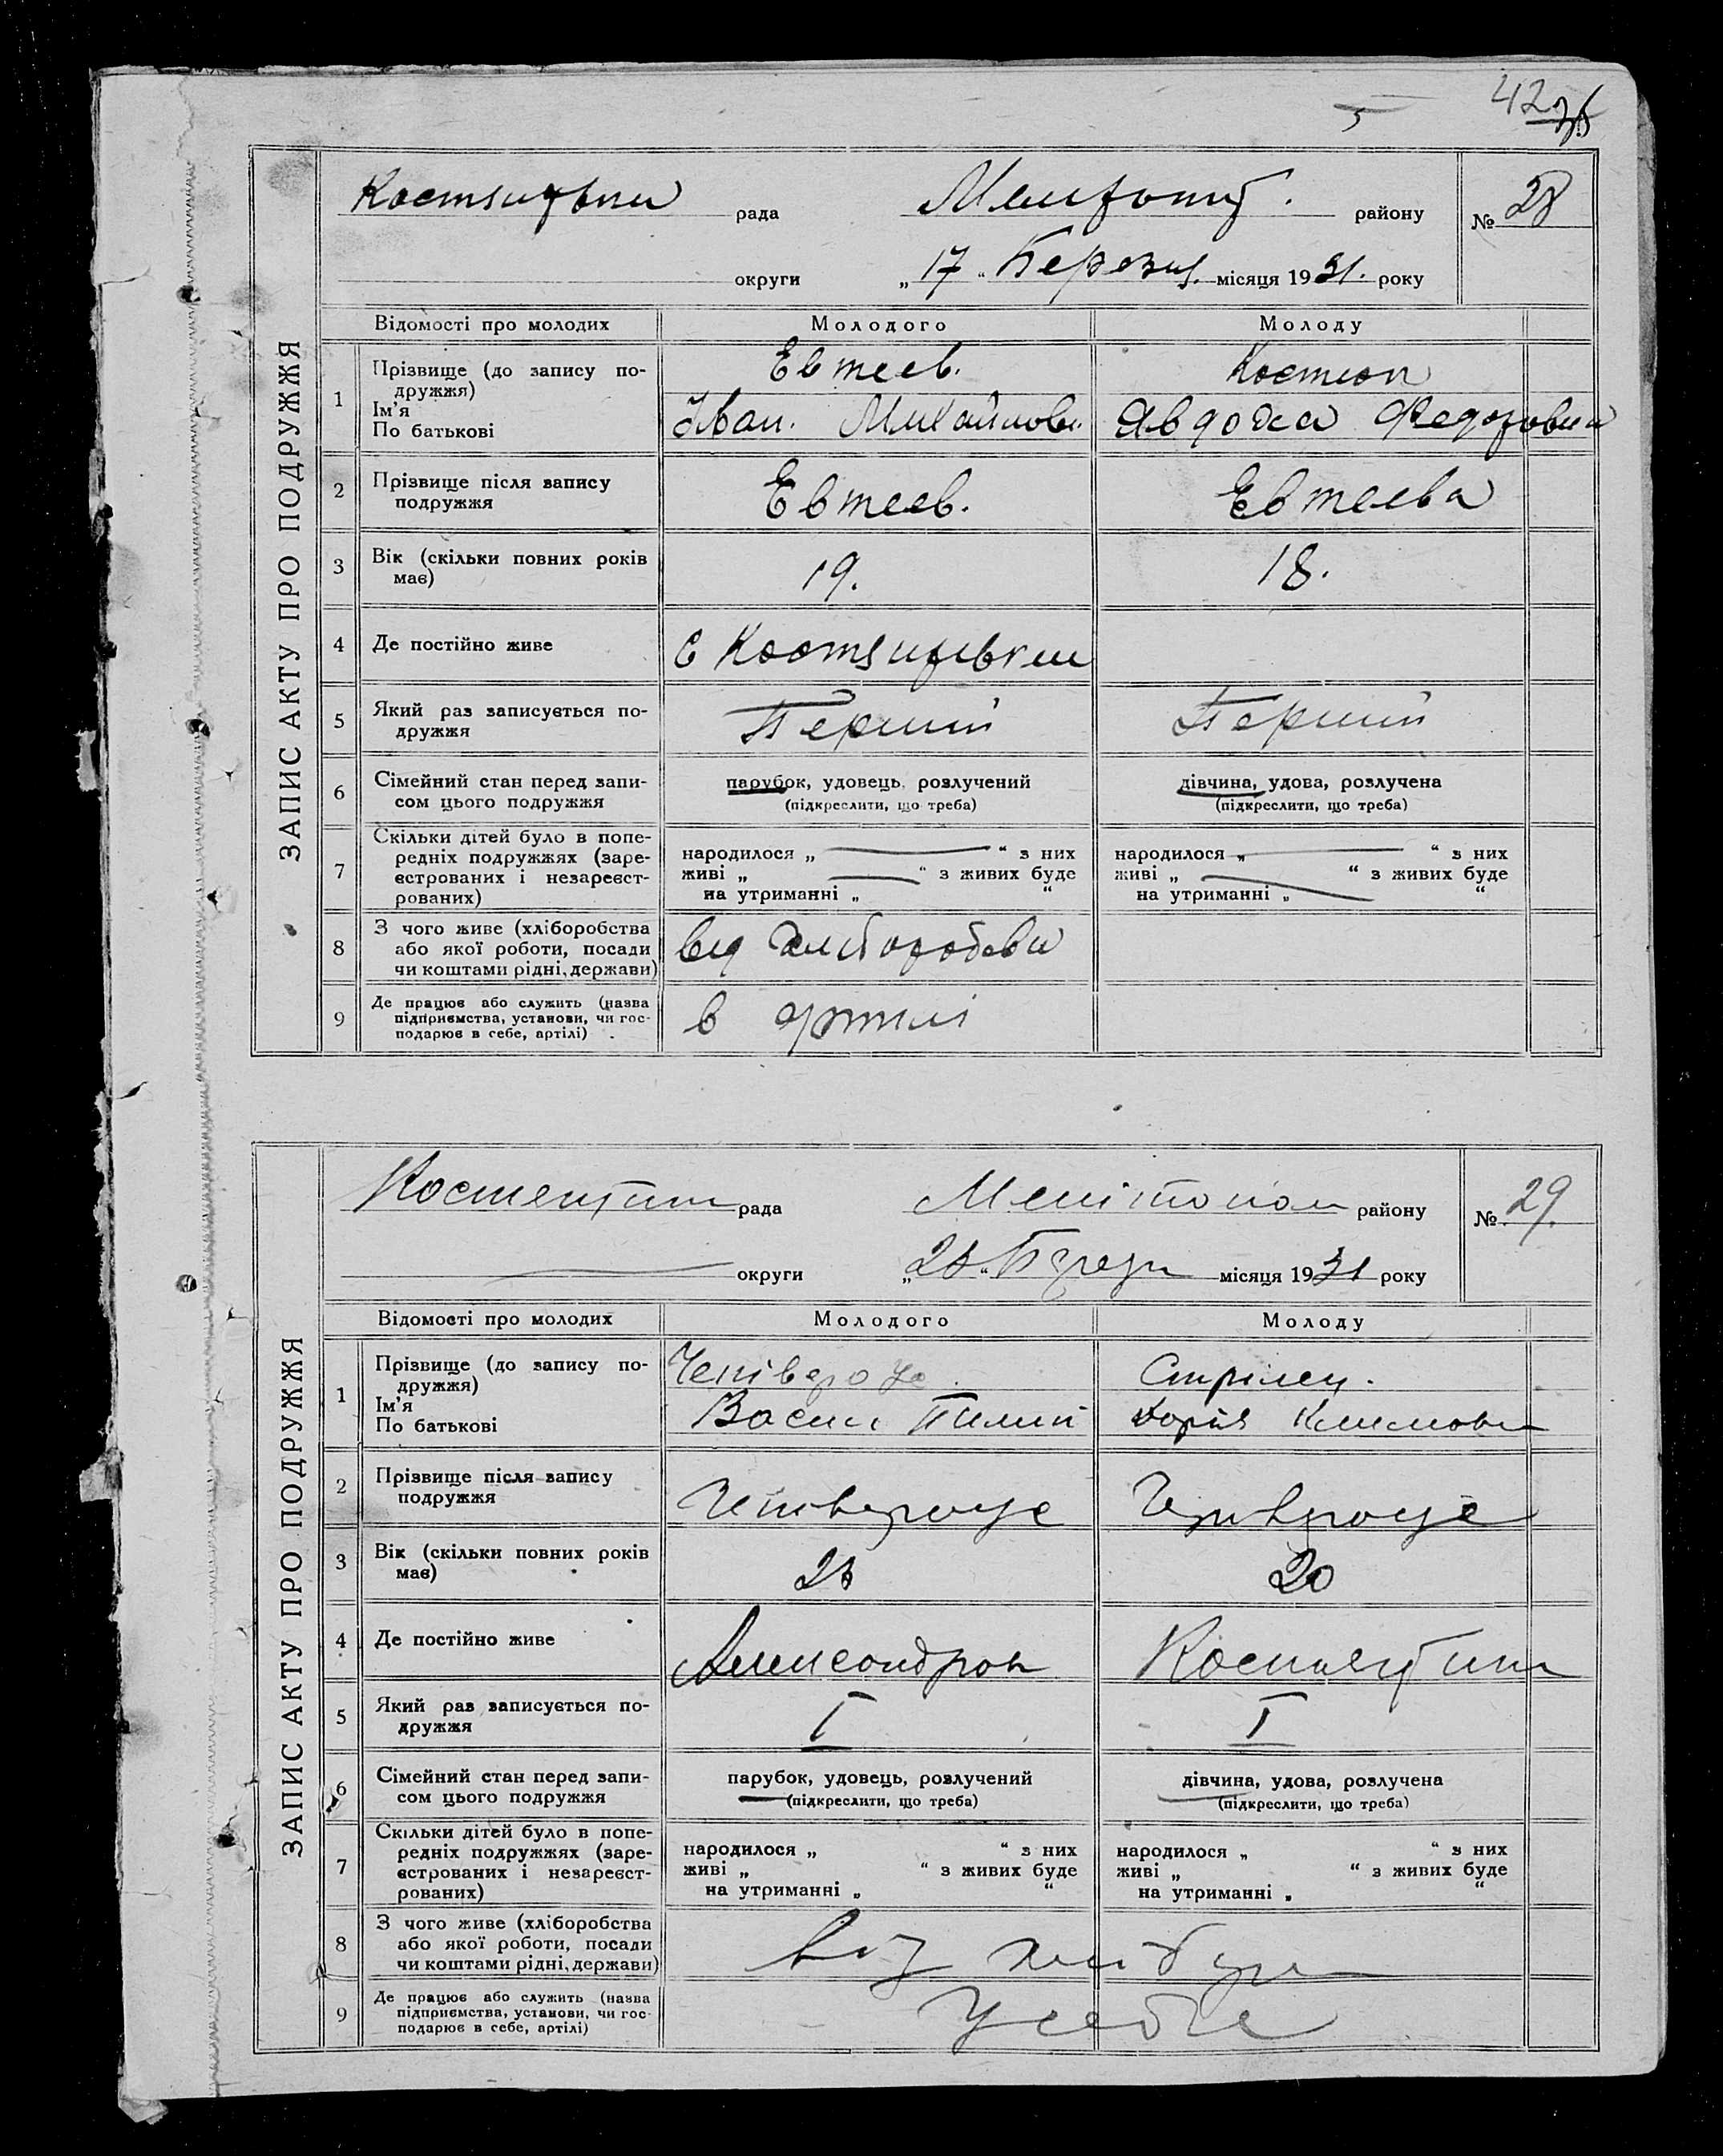 42
ЗАПИС АКТУ ПРО ПОДРУЖЖЯ
рада району № 28
округи „17“ Березня місяця 1931. року
Відомості про молодих Молодого Молоду
1 Прізвище (до запису по-
дружжя)
Ім'я
По батькові
Евтеев. Костюк
Іван. Авдоха Федоровна
2 Прізвище після запису
подружжя
Евтеев. Евтеева
3 Вік (скільки повних років
має)
19. 18.
4 Де постійно живе
5 Який раз записується по-
дружжя
Перший Перший
6 Сімейний стан перед запи-
сом цього подружжя
парубок, удовець, розлучений дівчина, удова, розлучена
(підкреслити, що треба) (підкреслити, що треба)
7 Скільки дітей було в попе-
редніх подружжях (заре-
єстрованих і незареєст-
рованих)
народилося „ “ з них народилося „ “ з них
живі „ “ з живих буде живі „ “ з живих буде
на утриманні „ “ на утриманні „ “
8 З чого живе (хліборобства
або якої роботи, посади
чи коштами рідні, держави)
від
9 Де працює або служить (назва
підприємства, установи, чи гос-
подарює в себе, артілі)
в артілі
ЗАПИС АКТУ ПРО ПОДРУЖЖЯ
рада району № 29.
округи місяця 1931 року
Відомості про молодих Молодого Молоду
1 Прізвище (до запису по-
дружжя)
Ім'я
По батькові
Стрілец.
Васил Дорія Климовн
2 Прізвище після запису
подружжя
3 Вік (скільки повних років
має)
20
4 Де постійно живе
5 Який раз записується по-
дружжя
I I
6 Сімейний стан перед запи-
сом цього подружжя
парубок, удовець, розлучений дівчина, удова, розлучена
(підкреслити, що треба) (підкреслити, що треба)
7 Скільки дітей було в попе-
редніх подружжях (заре-
єстрованих і незареєст-
рованих)
народилося „ “ з них народилося „ “ з них
живі „ “ з живих буде живі „ “ з живих буде
на утриманні „ “ на утриманні „ “
8 З чого живе (хліборобства
або якої роботи, посади
чи коштами рідні, держави)
від
9 Де працює або служить (назва
підприємства, установи, чи гос-
подарює в себе, артілі)
У себе